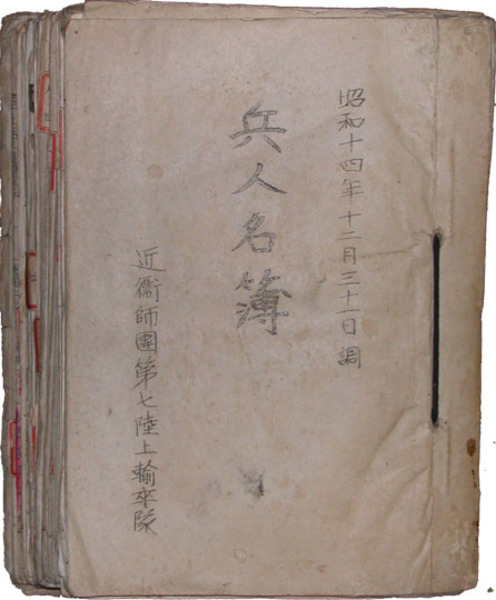 昭和十四年十二月三十一日調
兵人名簿
近衞師團第七陸上輸卒隊